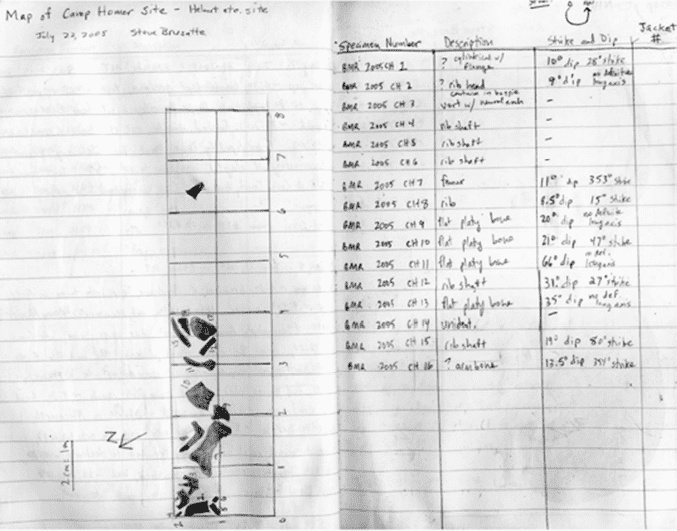 Map of Camp Homer Site - Helmut etc. site
July 23, 2005 Steve Brusatte
8
7
6
5
4
3
2
1
0
N
2cm : 1m
Specimen Number Description Strike and Dip Jacket #
BMR 2005 CH 1 ? cylindrical w/ flange 10° dip 28° strike
BMR 2005 CH 2 ? rib head 9° dip no definite long axis
BMR 2005 CH 3 vert w/ neural arch -
BMR 2005 CH 4 rib shaft -
BMR 2005 CH 5 rib shaft -
BMR 2005 CH 6 rib shaft -
BMR 2005 CH 7 femur 11° dip 353° strike
BMR 2005 CH 8 rib 8.5° dip 15° strike
BMR 2005 CH 9 flat platy bone 20° dip no definite long axis
BMR 2005 CH 10 flat platy bone 21° dip 47° strike
BMR 2005 CH 11 flat platy bone 66° dip no def. long axis
BMR 2005 CH 12 rib shaft 31° dip 27° strike
BMR 2005 CH 13 flat platy bone 35° dip no def. long axis
BMR 2005 CH 14 unident. -
BMR 2005 CH 15 rib shaft 19° dip 80° strike
BMR 2005 CH 16 ? arm bone 13.5° dip strike